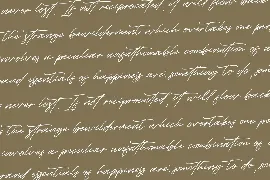 never lost. If not reciprocated, it will flow back
the strange bewilderment which overtakes one
involves a peculiar unfathomable combination of
and essentials of happiness are, something to do,
never lost. If not reciprocated, it will flow back
the strange bewilderment which overtakes one
involves a peculiar unfathomable combination of
and essentials of happiness are, something to do,